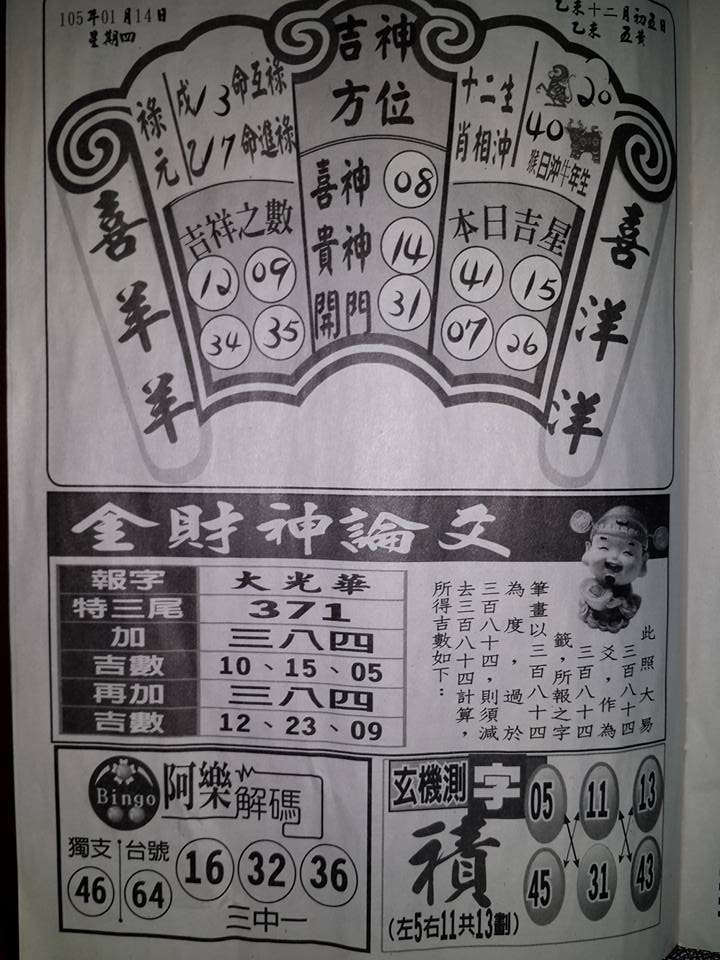 105年01月14日
星期四
乙未十二月初五日
乙亥 五黄
吉神
方位
喜神 08
貴神 14
開門 31
祿元
戍13命互祿
乙7命進祿
吉祥之數
12 09
34 35
十二生
肖相沖
20
40
猴日沖牛年生
本日吉星
41 15
07 26
喜羊羊
喜洋洋
金財神論文
報字 大光華
特三尾 371
加 三八四
吉數 10、15、05
再加 三八四
吉數 12、23、09
此照大易
三百八十四
爻，作為
三百八十四
籤，所報之字
筆畫以三百八十四
為度，過於
三百八十四，則須減
去三百八十四計算，
所得吉數如下：
Bingo
阿樂解碼
獨支 台號
46 64 16 32 36
三中一
玄機測字
積
(左5右11共13劃)
05 11 13
45 31 43